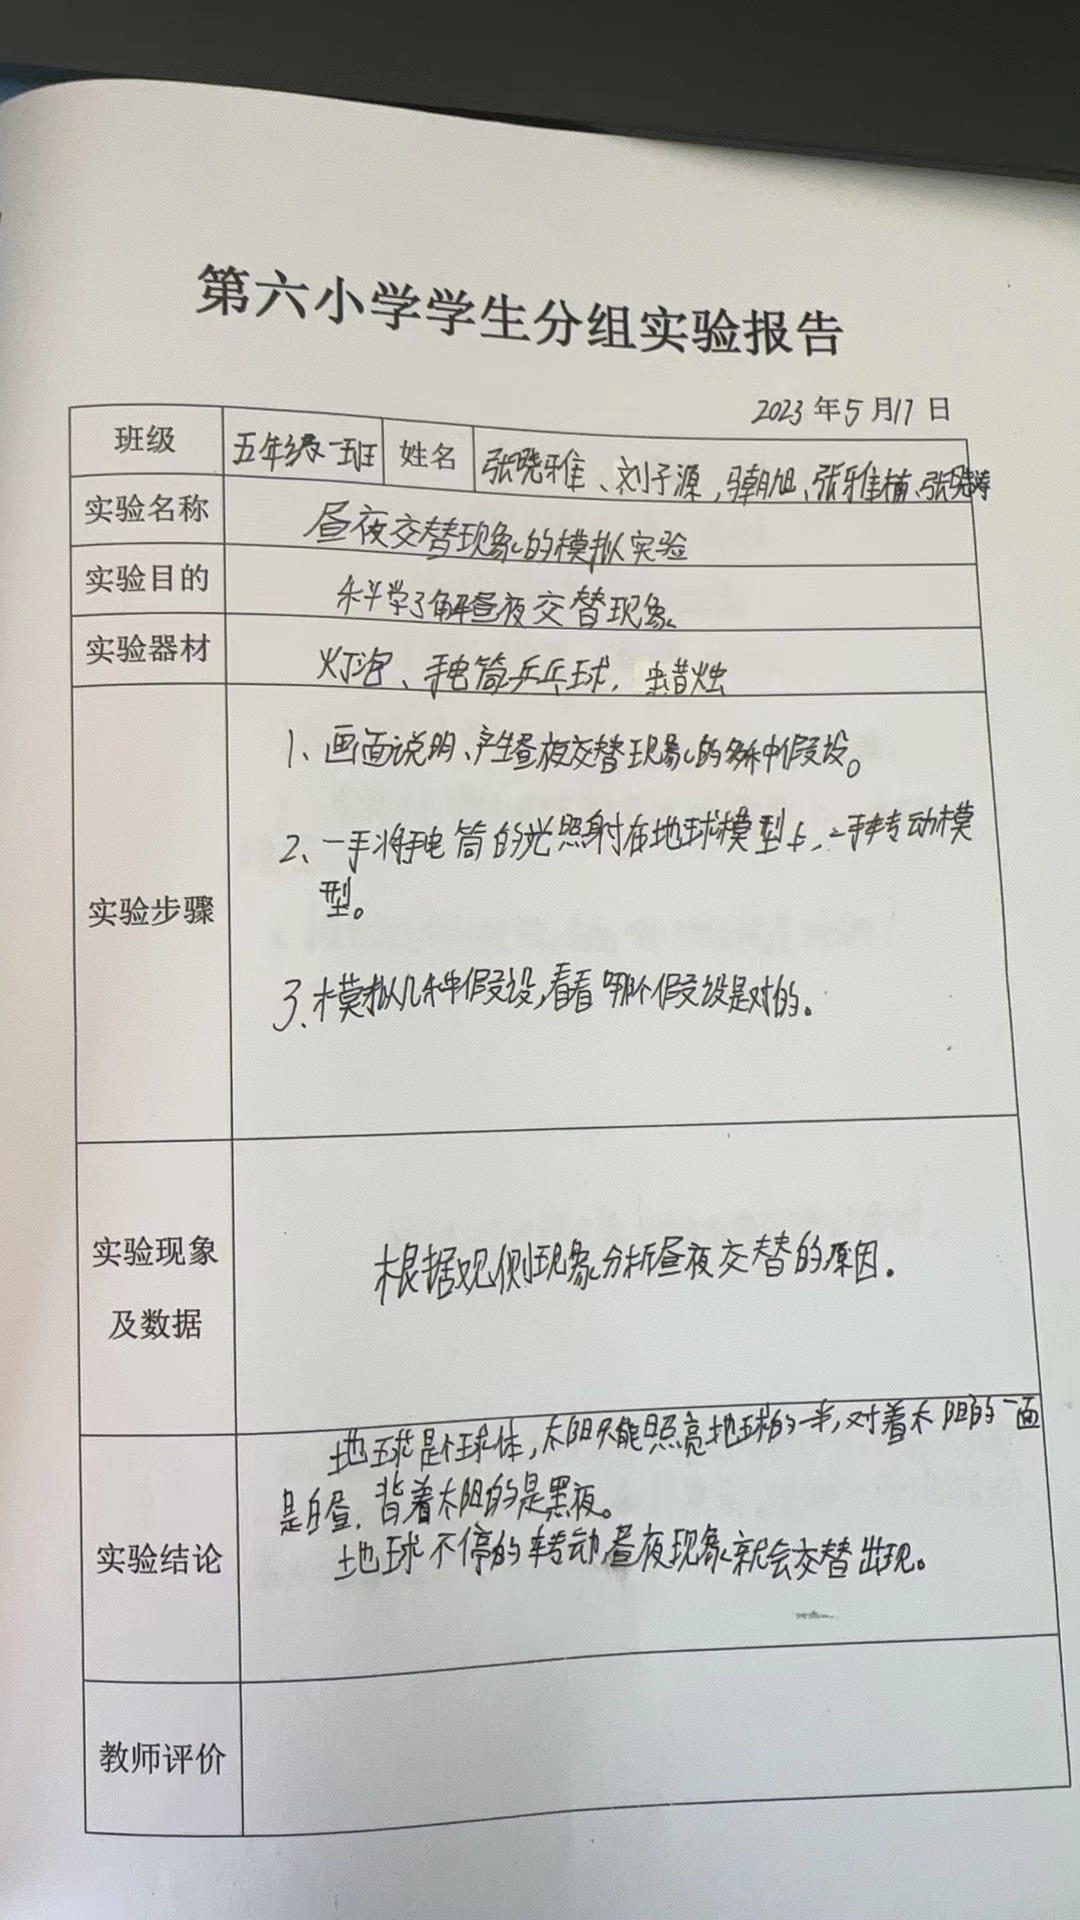 第六小学学生分组实验报告
2023年5月17日
班级 五年级一班 姓名 张晓雅、刘子源,朝旭、张雅楠、张晓涛
实验名称 昼夜交替现象的模拟实验
实验目的 科学了解昼夜交替现象
实验器材 灯泡、手电筒乒乓球,蜡烛
1、画面说明、产生昼夜交替现象的多种假设。
2、一手将手电筒的光照射在地球模型上,一手转动模
型。
实验步骤
3、模拟几种假设,看看哪个假设是对的。
实验现象
及数据
根据观侧现象分析昼夜交替的原因.
地球是个球体,太阳只能照亮地球的一半,对着太阳的一面
是白昼,背着太阳的是黑夜。
地球不停的转动,昼夜现象就会交替出现。
实验结论
教师评价